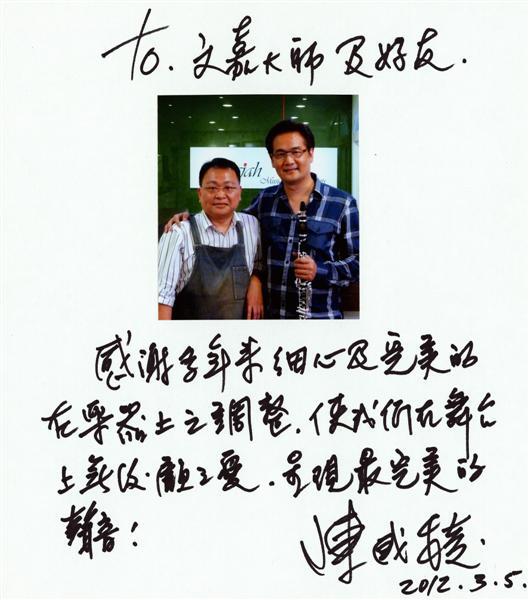 To. 文嘉大師及好友.
感謝多年来細心及完美的
在樂器上之調整, 使我們在舞台
上無後顧之憂. 呈現最完美的
聲音!
陳威稜.
2012.3.5.